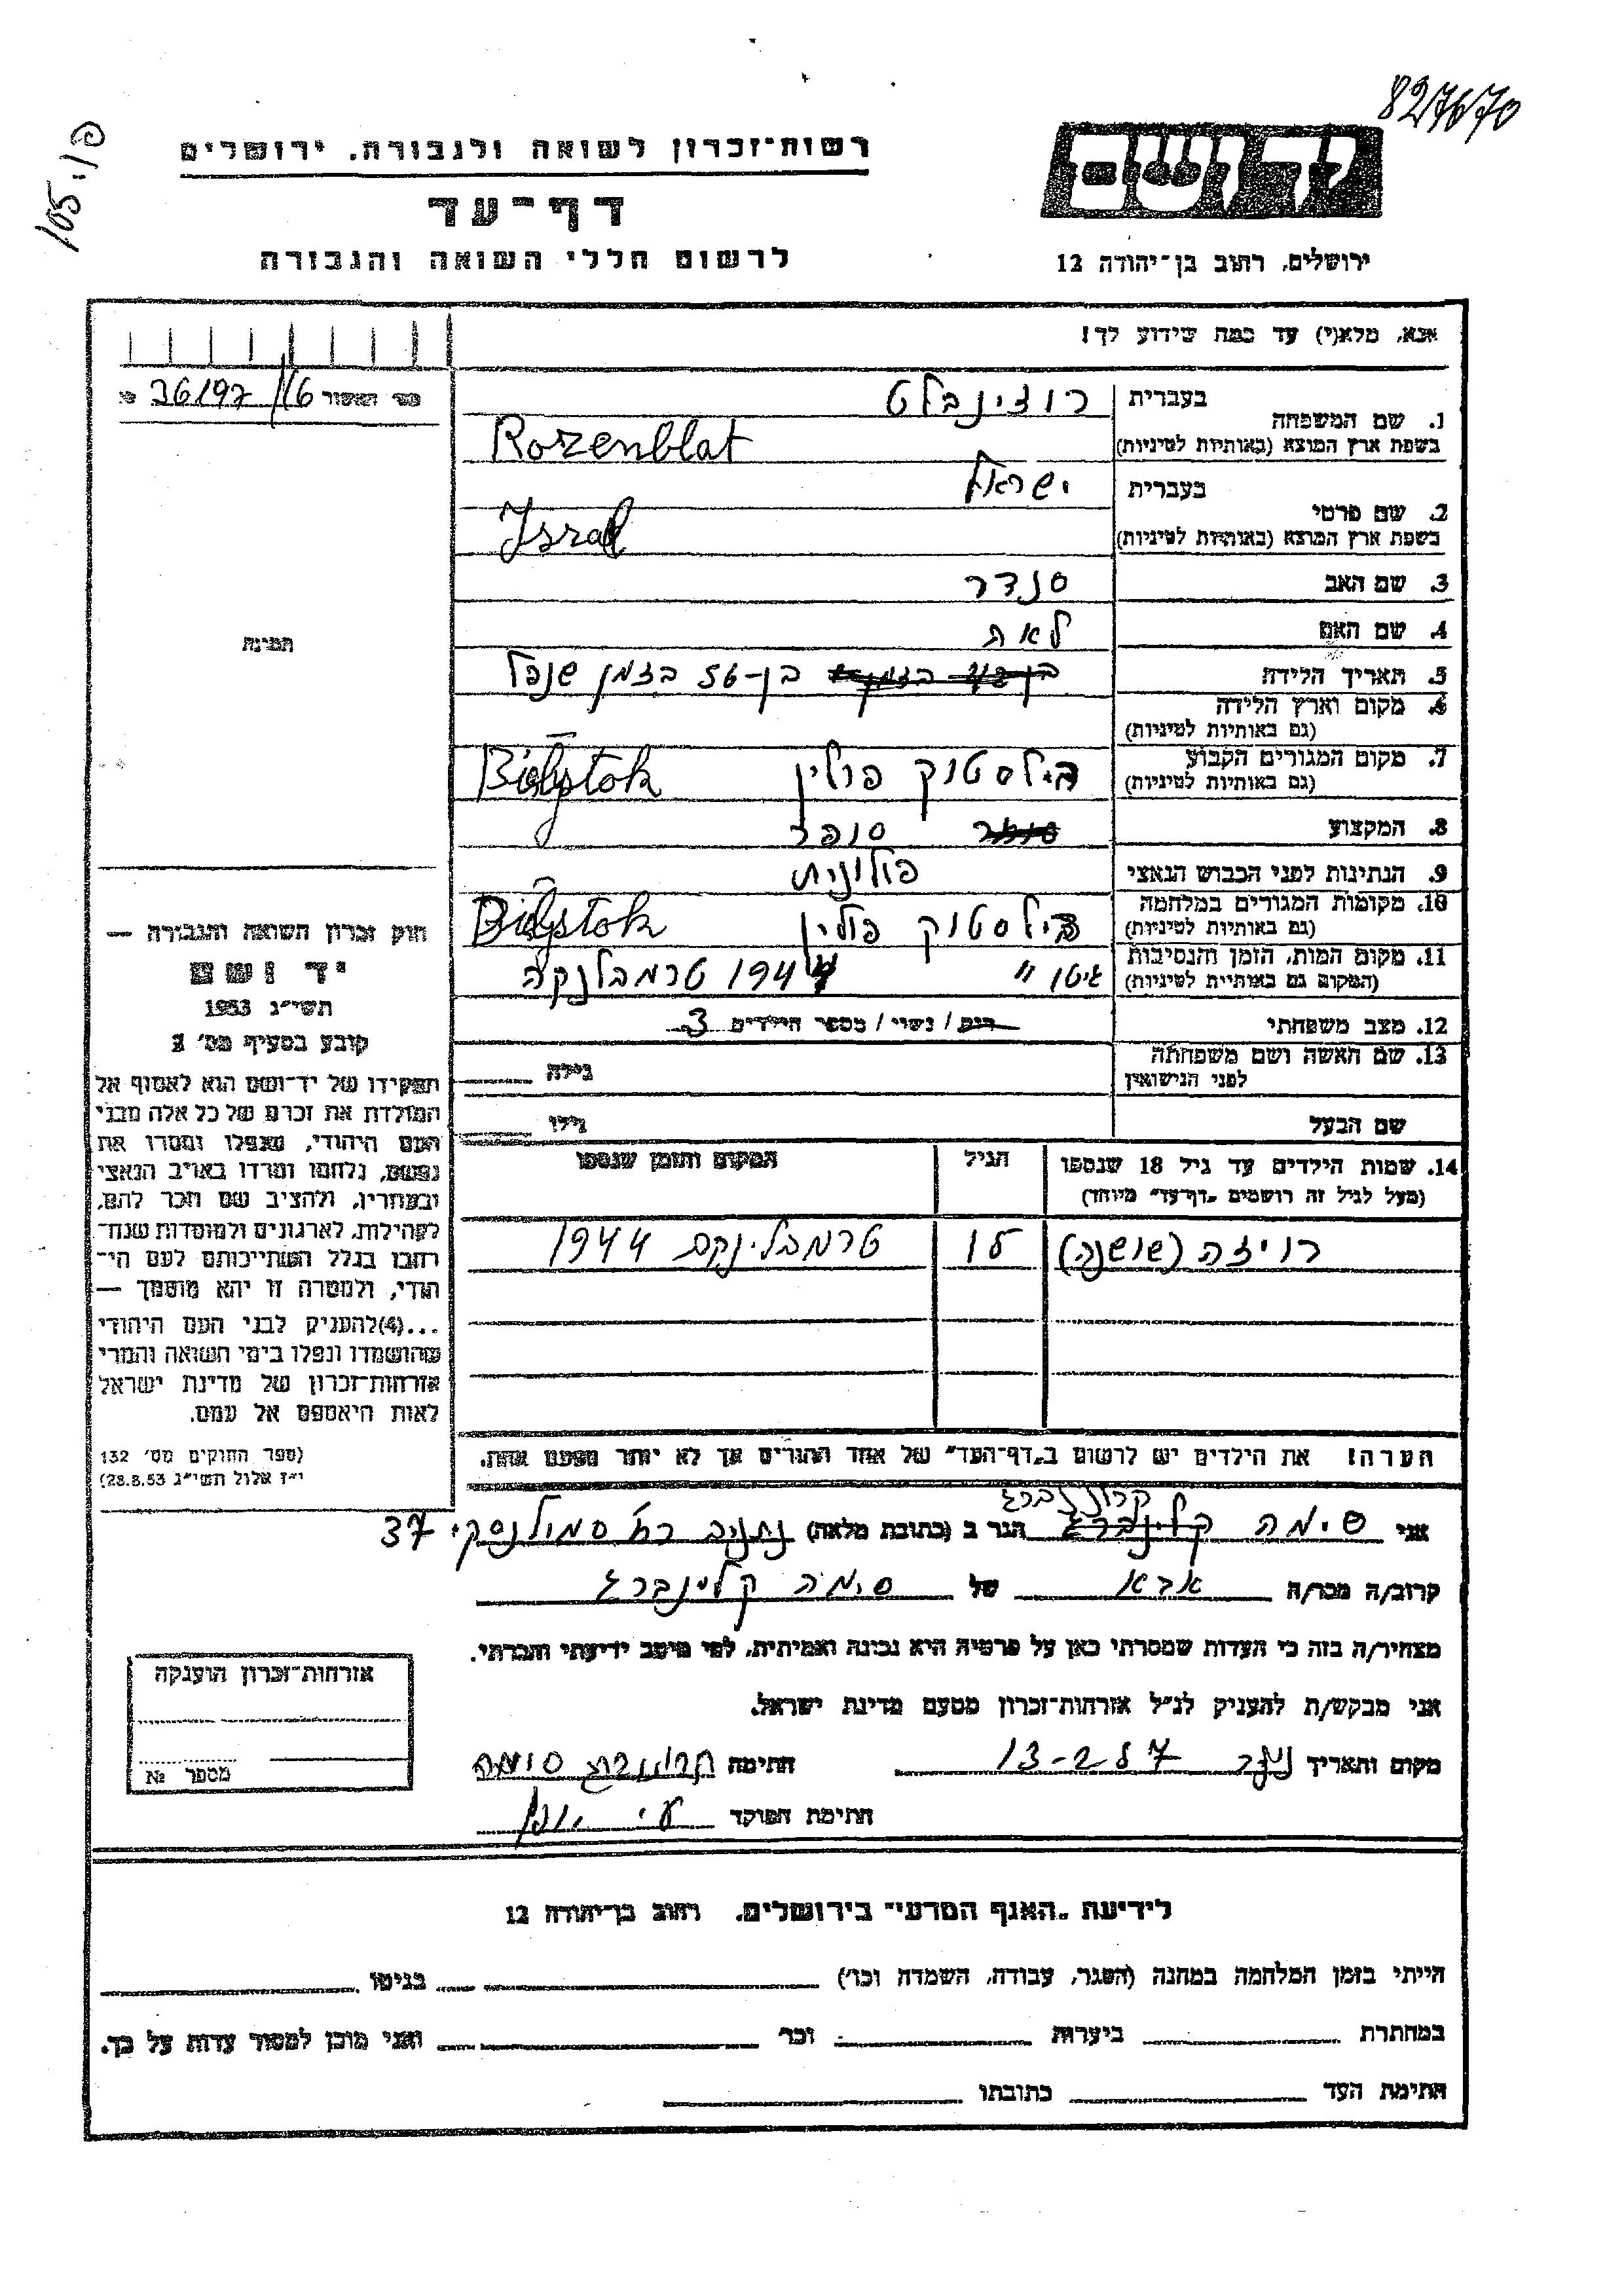 827670
פ.105/1
ידושם
ירושלים, רחוב בן־יהודה 12
רשות־זכרון לשואה ולגבורה, ירושלים
דף־עד
לרשום חללי השואה והגבורה
אנא, מלא(י) עד כמה שידוע לך!
מס׳ האשור 36197/16
1. שם המשפחה
בעברית רוזינבלט
בשפת ארץ המוצא (באותיות לטיניות) Rozenblat
2. שם פרטי
בעברית ישראל
בשפת ארץ המוצא (באותיות לטיניות) Israel
3. שם האב סנדר
4. שם האם לאה
5. תאריך הלידה בן-56 בזמן שנפל
6. מקום וארץ הלידה
(גם באותיות לטיניות)
7. מקום המגורים הקבוע בילסטוק פולין Bialystok
(גם באותיות לטיניות)
8. המקצוע סופר
9. הנתינות לפני הכבוש הנאצי פולונית
10. מקומות המגורים במלחמה בילסטוק פולין Bialystok
(גם באותיות לטיניות)
11. מקום המות, הזמן והנסיבות גיטו 1944 טרמבלנקה
(המקום גם באותיות לטיניות)
12. מצב משפחתי רוק / נשוי / מספר הילדים 3
13. שם האשה ושם משפחתה גילה
לפני הנישואין
שם הבעל גילו
14. שמות הילדים עד גיל 18 שנספו הגיל המקום והזמן שנספו
(מעל לגיל זה רושמים „דף־עד״ מיוחד)
רויזה (שושנה) 15 טרמבלינקה 1944
הערה! את הילדים יש לרשום ב„דף־העד״ של אחד ההורים אך לא יותר מפעם אחת.
תמונה
חוק זכרון השואה והגבורה —
יד ושם
תשי״ג 1953
קובע בסעיף מס׳ 2
תפקידו של יד־ושם הוא לאסוף אל
המולדת את זכרם של כל אלה מבני
העם היהודי, שנפלו ומסרו את
נפשם, נלחמו ומרדו באויב הנאצי
ובעוזריו, ולהציב שם וזכר להם,
לקהילות, לארגונים ולמוסדות שנח־
רבו בגלל השתייכותם לעם הי־
הודי, ולמטרה זו יהא מוסמך —
...(4)להעניק לבני העם היהודי
שהושמדו ונפלו בימי השואה והמרי
אזרחות־זכרון של מדינת ישראל
לאות היאספם אל עמם.
(ספר החוקים מס׳ 132
י״ז אלול תשי״ג 28.8.53)
אני סימה הגר ב (כתובת מלאה) נתניה רח׳ סמולנסקי 37
קרוב/ה מכר/ה אבא של סימה קלינברג
מצהיר/ה בזה כי העדות שמסרתי כאן על פרטיה היא נכונה ואמיתית, לפי מיטב ידיעתי והכרתי.
אני מבקש/ת להעניק לנ״ל אזרחות־זכרון מטעם מדינת ישראל.
מקום ותאריך חתימה
חתימת הפוקד
אזרחות־זכרון הוענקה
מספר №
לידיעת „האגף המדעי״ בירושלים, רחוב בן־יהודה 12
הייתי בזמן המלחמה במחנה (הסגר, עבודה, השמדה וכו׳) בגיטו
במחתרת ביערות וכו׳ ואני מוכן למסור עדות על כך.
חתימת העד כתובתו